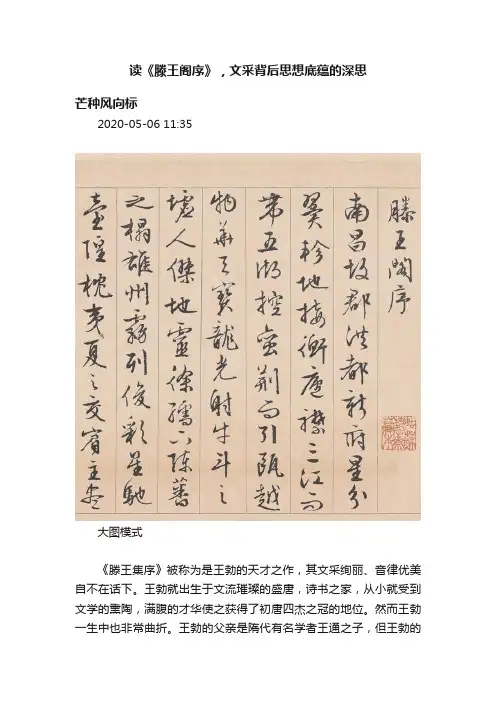 读《滕王阁序》，文采背后思想底蕴的深思
芒种风向标
2020-05-06 11:35
滕王閣序
南昌故郡洪都新府星分
翼軫地接衡廬襟三江而
帶五湖控蠻荊而引甌越
物華天寶龍光射牛斗之
墟人傑地靈徐孺下陳蕃
之榻雄州霧列俊彩星馳
臺隍枕夷夏之交賓主盡
大图模式
《滕王集序》被称为是王勃的天才之作，其文采绚丽、音律优美
自不在话下。王勃就出生于文流璀璨的盛唐，诗书之家，从小就受到
文学的熏陶，满腹的才华使之获得了初唐四杰之冠的地位。然而王勃
一生中也非常曲折。王勃的父亲是隋代有名学者王通之子，但王勃的